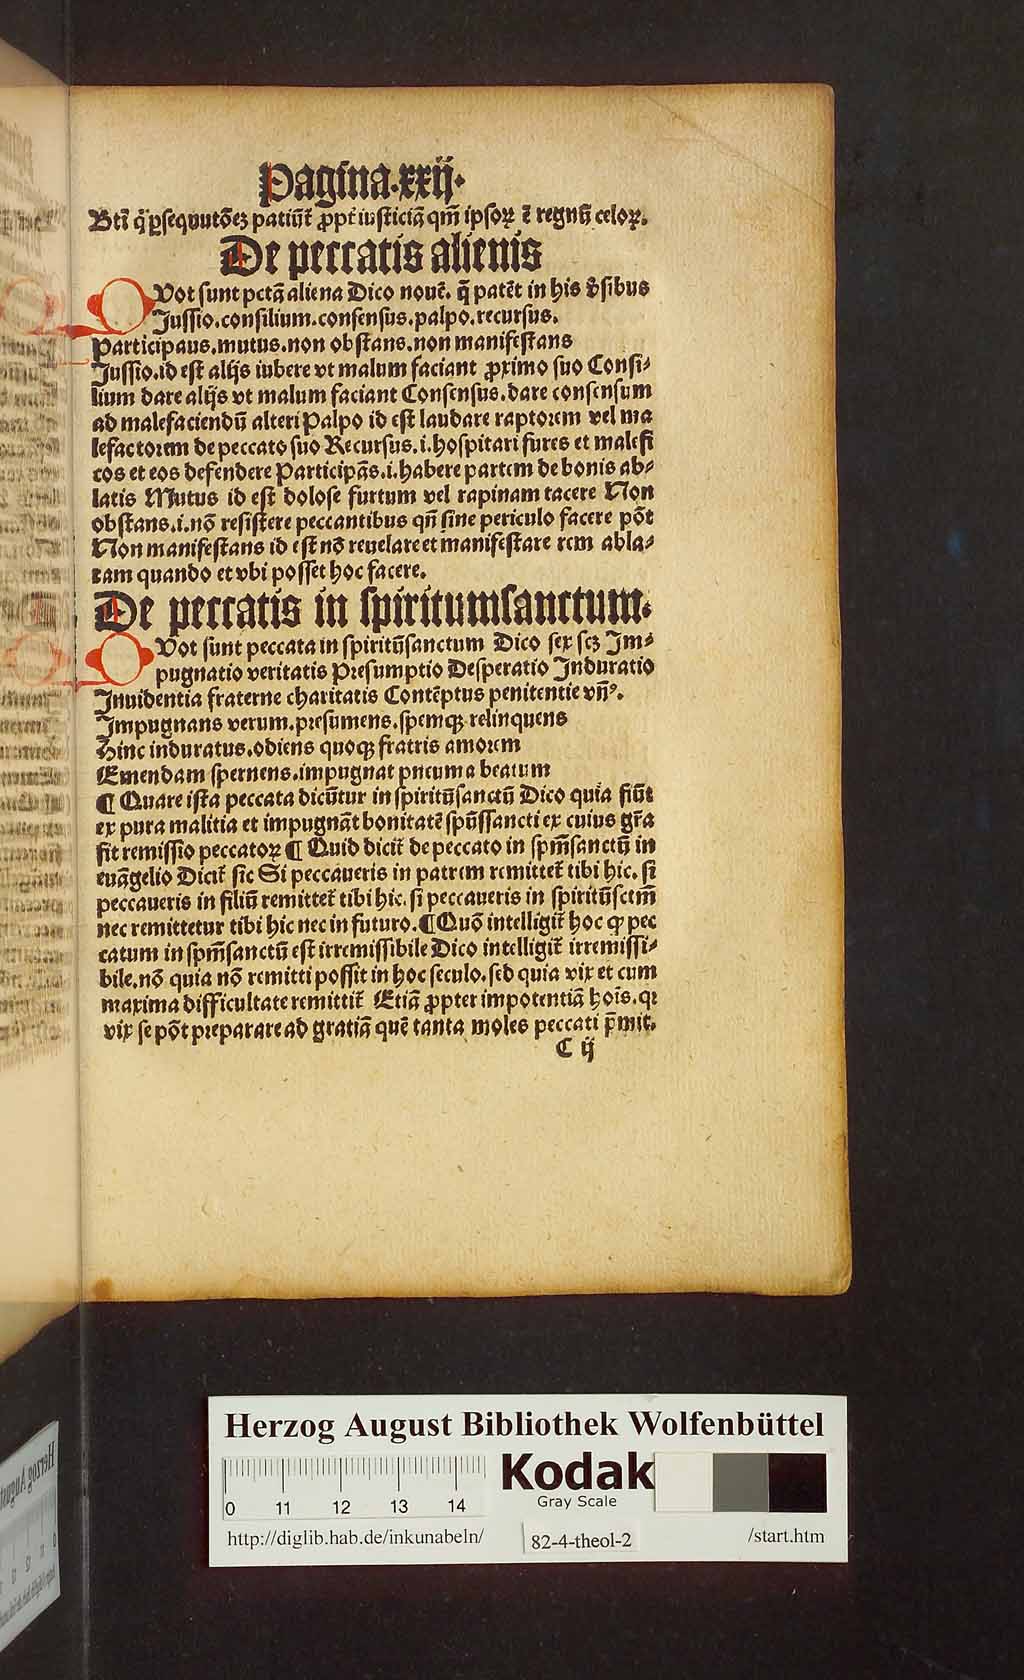 Pagina.xxij.
Bti͂ q̇ ꝑsequutōeꝫ patiūt͛ ꝓpt͛ iusticiā qm̄ ipsoꝝ ē regnū celoꝝ.
De peccatis alienis
QVot sunt pctā aliena Dico nouē. q̄ patēt in his v͛sibus
Jussio.consilium.consensus.palpo.recursus.
Participaus.mutus.non obstans.non manifestans
Jussio.id est alijs iubere vt malum faciant ꝓximo suo Consi⸗
lium dare alijs vt malum faciant Consensus.dare consensum
ad malefaciendū alteri Palpo id est laudare raptorem vel ma
lefactorem de peccato suo Recursus.i.hospitari fures et malefi
cos et eos defendere Participās.i.habere partem de bonis ab⸗
latis Mutus id est dolose furtum vel rapinam tacere Non
obstans.i.nō resistere peccantibus qn̄ sine periculo facere pōt
Non manifestans id est nō reuelare et manifestare rem abla⸗
tam quando et vbi posset hoc facere.
De peccatis in spiritumsanctum.
QVot sunt peccata in spiritūsanctum Dico sex scꝫ Jm⸗
pugnatio veritatis Presumptio Desperatio Jnduratio
Jnuidentia fraterne charitatis Contēptus penitentie vn̄ꝰ.
Jmpugnans verum.presumens.spemqꝫ relinquens
Hinc induratus.odiens quoqꝫ fratris amorem
Emendam spernens.impugnat pneuma beatum
¶ Quare ista peccata dicūtur in spiritūsanctū Dico quia fiūt
ex pura malitia et impugnāt bonitatē spūssancti ex cuius gr̄a
fit remissio peccatoꝝ ¶ Quid dicit͛ de peccato in spm̄sanctū in
euāgelio Dicit͛ sic Si peccaueris in patrem remittet͛ tibi hic. si
peccaueris in filiū remittet͛ tibi hic. si peccaueris in spiritūsctm̄
nec remittetur tibi hic nec in futuro. ¶ Quō intelligit͛ hoc ꝙ pec
catum in spm̄sanctū est irremissibile Dico intelligit͛ irremissi⸗
bile.nō quia nō remitti possit in hoc seculo.sed quia vix et cum
maxima difficultate remittit͛ Etiā ꝓpter impotentiā hoīs.qꝛ
vix se pōt preparare ad gratiā quē tanta moles peccati p̄mit.
C ij
Herzog August Bibliothek Wolfenbüttel
0 11 12 13 14
Kodak
Gray Scale
http://diglib.hab.de/inkunabeln/ 82-4-theol-2 /start.htm